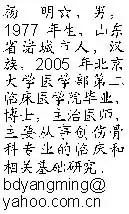 汤 明六，男，
1977 年生，山东
省诸城市人，汉
族，2005 年北京
大学医学部第二
临床医学院毕业，
博士，主治医师，
主要从事创伤骨
科专业的临床和
相关基础研究。
bdyangming@
yahoo.com.cn